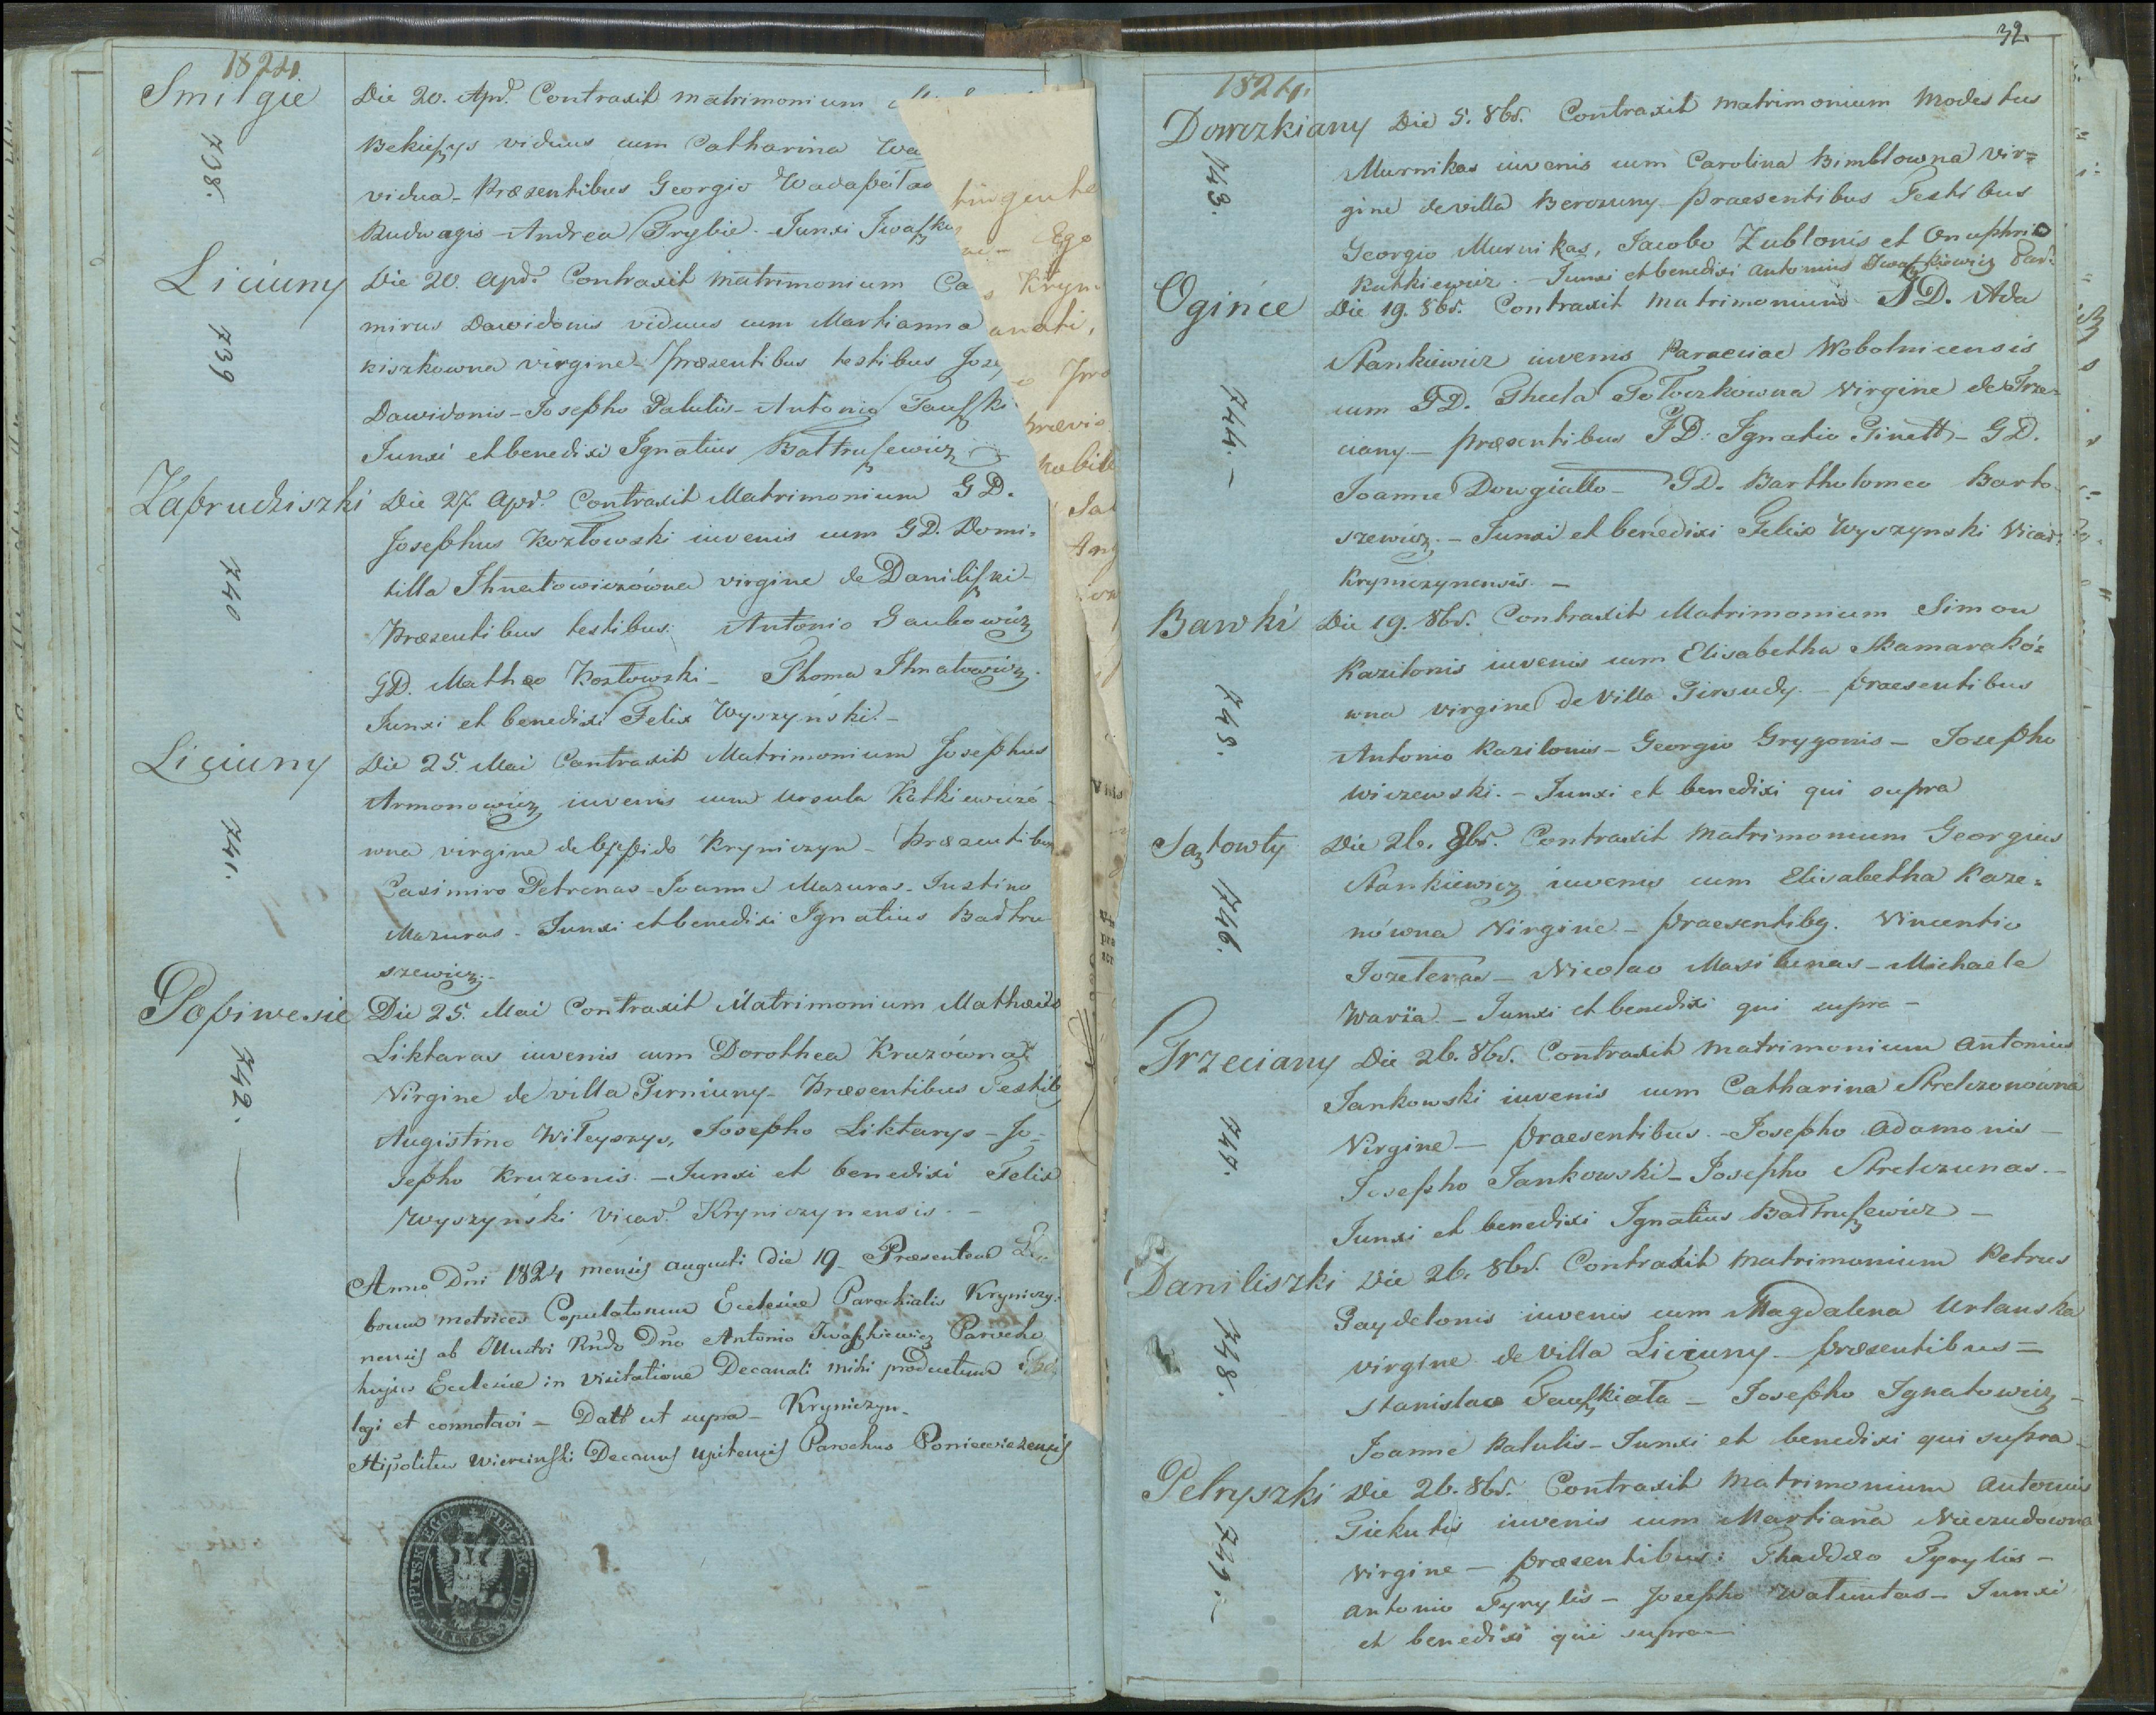 1824.
Smilgie
738.
Die 20. Apr. Contraxit matrimonium
Bekieszys viduus cum Catharina
vidua - Præsentibus Georgio
Budwagis - Andrea Trybie - Junxi
Liciuny
739
Die 20. Apr. Contraxit Matrimonium Ca
mirus Dawidonis viduus cum Martianna
kiszkowna virgine - Præsentibus testibus
Dawidonis - Josepho Palulis - Antonio
Junxi et benedixi Ignatius Baltruszewicz
Zaprudziszki
740
Die 27. Apr. Contraxit Matrimonium GD.
Josephus Kozłowski iuvenis cum GD. Domi-
tilla Ihnatowiczówna virgine de Daniliszki -
Præsentibus testibus: Antonio Gaubowicz
GD. Matheo Kozłowski - Thoma Ihnatowicz.
Junxi et benedixi Felix Wyszyński. -
Liciuny
741.
Die 25. Mai Contraxit Matrimonium Josephus
Armonowicz iuvenis cum Ursula Rutkiewiczó-
wna virgine de oppido Kryniczyn - Præsentibus
Casimiro Petrenas - Joanne Mazuras - Justino
Mazuras - Junxi et benedixi Ignatius Badtru
szewicz. -
Popiwesie
742. -
Die 25. Mai Contraxit Matrimonium Mathæus
Liktaras iuvenis cum Dorothea Kruzówna
Virgine de villa Girniuny - Præsentibus Testib
Augistino Wileyszys, Josepho Liktarys - Jo-
sepho Kruzonis. - Junxi et benedixi Felix
Wyszyński Vicar. Kryniczynensis. -
Anno Dni 1824 mensis Augusti die 19 Præsentem
brum metrices Copulatorum Ecclesiæ Parochialis Kryniczy-
nensis ab Illustri Rndo Dno Antonio Iwaszkiewicz Parocho
hujus Ecclesiæ in Visitatione Decanali mihi productum
legi et connotavi - Datt ut supra - Kryniczyn -
Hipolitus Wierciński Decanus Upitensis Parochus Poniewiezensis
tingente
Ego
Krym
anati,
prævio
nobile
32.
1824.
Dowczkiany
743.
Die 5. 8br. Contraxit Matrimonium Modestus
Murnikas iuvenis cum Carolina Bimblowna vir=
gine de villa Berozuny - Praesentibus Testibus
Georgio Murnikas, Jacobo Zublonis et Onuphrio
Rutkiewicz. - Junxi et benedixi Antonius Iwaszkiewicz Par.
Ogińce
744. -
Die 19. 8br. Contraxit Matrimonium GD. Ada
Stankiewicz iuvenis Paraeciae Wobolnicensis
cum GD. Thecla Gołoczkówna Virgine de Trze-
ciany - Præsentibus GD: Ignatio Ginett - GD.
Joanne Dowgiallo - GD. Bartholomeo Barto-
szewicz. - Junxi et benedixi Felix Wyszynski Vicar:
Kryniczynensis. -
Bawki
745.
Die 19. 8br. Contraxit Matrimonium Simon
Kazilonis iuvenis cum Elisabetha Skamarakó=
wna virgine de Villa Girsudy. - Praesentibus
Antonio Kazilonis - Georgio Grygonis - Josepho
Wiczewski. - Junxi et benedixi qui supra
Saztowty
746.
Die 26. 8br. Contraxit Matrimonium Georgius
Stankiewicz iuvenis cum Elisabetha Kaze=
nówna Virgine - Praesentibq. Vincentio
Jozelenas - Nicolao Masilunas - Michaele
Waria. - Junxi et benedixi qui supra -
Trzeciany
747.
Die 26. 8br. Contraxit Matrimonium Antonius
Jankowski iuvenis cum Catharina Strelczonówna
Virgine - Praesentibus. - Josepho Adamonis -
Josepho Jankowski - Josepho Strelczunas. -
Junxi et benedixi Ignatius Badtruszewicz -
Daniliszki
748.
Die 26. 8br. Contraxit Matrimonium Petrus
Gaydelonis iuvenis cum Magdalena Urlanska
virgine de Villa Liciuny - Præsentibus =
Stanislao Gauszkiata - Josepho Ignatowicz -
Joanne Palulis - Junxi et benedixi qui supra -
Petryszki
749. -
Die 26. 8br. Contraxit Matrimonium Antonius
Giekutis iuvenis cum Martiana Nieczudowna
Virgine - Præsentibus: Thaddæo Tyrylis -
Antonio Tyrylis - Josepho Waluntas - Junxi
et benedixi qui supra -